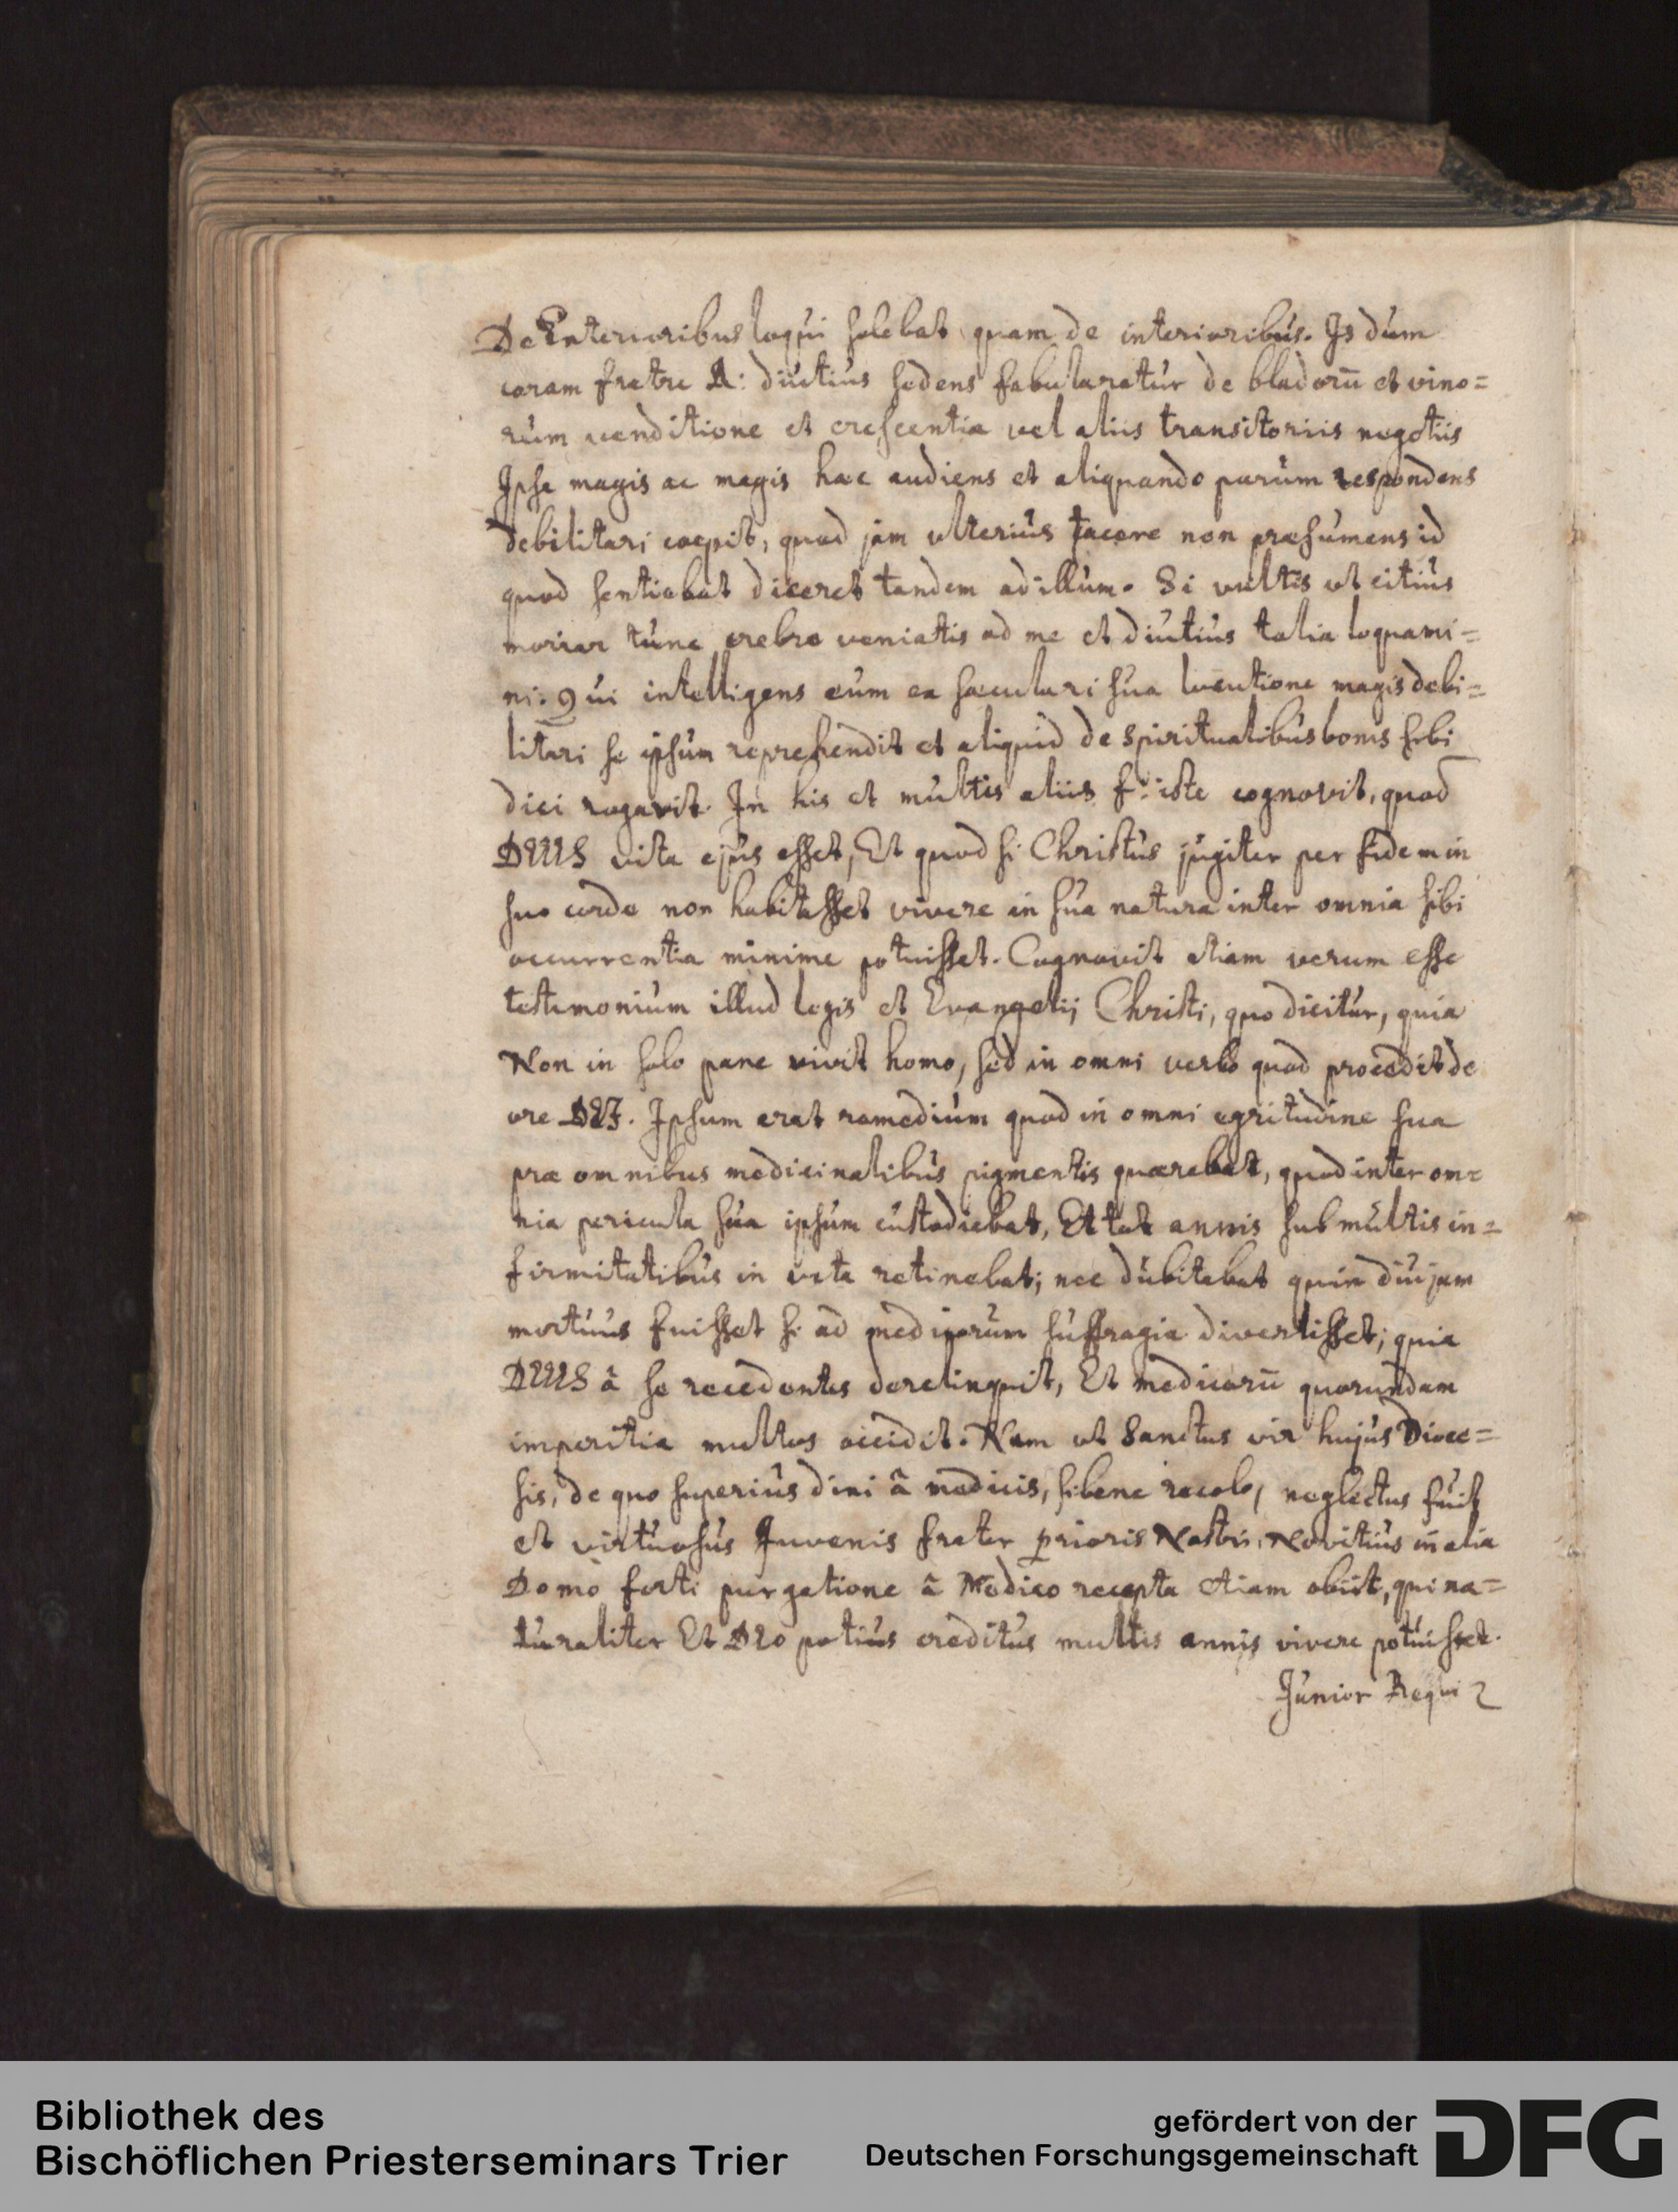 De Exterioribus loqui solebat quam de interioribus. Is dum
coram fratre A: diutius sedens fabularetur de bladorū et vino=
rum venditione et crescentia vel aliis transitoriis negotiis
Ipse magis ac magis hæc audiens et aliquando parum respondens
debilitari coepit, quod jam ulterius tacere non præsumens id
quod sentiebat diceret tandem ad illum. Si vultis ut citius
moriar tunc crebro veniatis ad me et diutius talia loquami=
ni. Qui intelligens eum ex sæculari sua locutione magis debi=
litari se ipsum reprehendit et aliquid de spiritualibus bonis sibi
dici rogavit. In his et multis aliis f: iste cognovit, quod
DEUS vita ejus esset, Et quod si Christus jugiter per fidem in
suo corde non habitasset vivere in sua natura inter omnia sibi
occurrentia minime potuisset. Cognovit etiam verum esse
testimonium illud legis et Evangelij Christi, quo dicitur, quia
Non in solo pane vivit homo, sed in omni verbo quod procedit de
ore DEI. Ipsum erat remedium quod in omni egritudine sua
præ omnibus medicinalibus pigmentis quærebat, quod inter om=
nia pericula sua ipsum custodiebat, Et tot annis sub multis in=
firmitatibus in vita retinebat; nec dubitabat quin diu jam
mortuus fuisset si ad medicorum suffragia divertisset; quia
DEUS â se recedentes derelinquit, Et medicorū quorundam
imperitia multos occidit. Nam ut Sanctus vir hujus Dioec=
sis, de quo superius dixi â medicis, si bene recolo, neglectus fuit
et virtuosus Juvenis frater prioris Nostri, Novitius in alia
Domo forti purgatione â Medico recepta etiam obiit, qui na=
turaliter Et DEO potius creditus multis annis vivere potuisset.
Junior Requi
Bibliothek des
Bischöflichen Priesterseminars Trier
gefördert von der
Deutschen Forschungsgemeinschaft
DFG